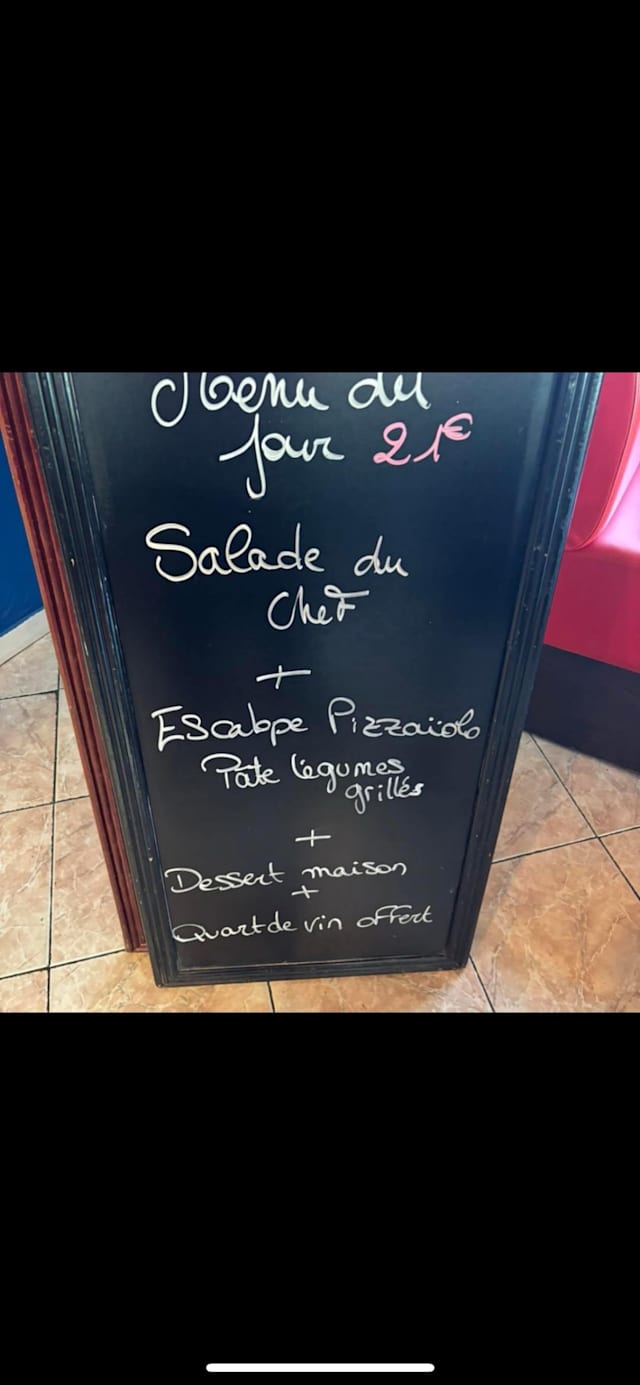 Menu du
jour 21€
Salade du
Chef
+
Escalope Pizzaïolo
Pâte légumes
grillés
+
Dessert maison
+
Quart de vin offert